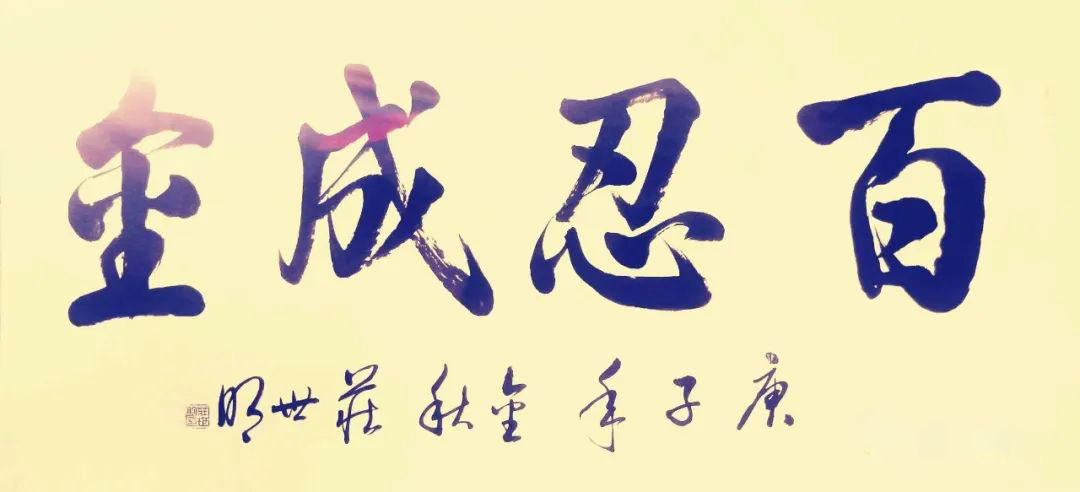 百忍成金
庚子年金秋莊世明